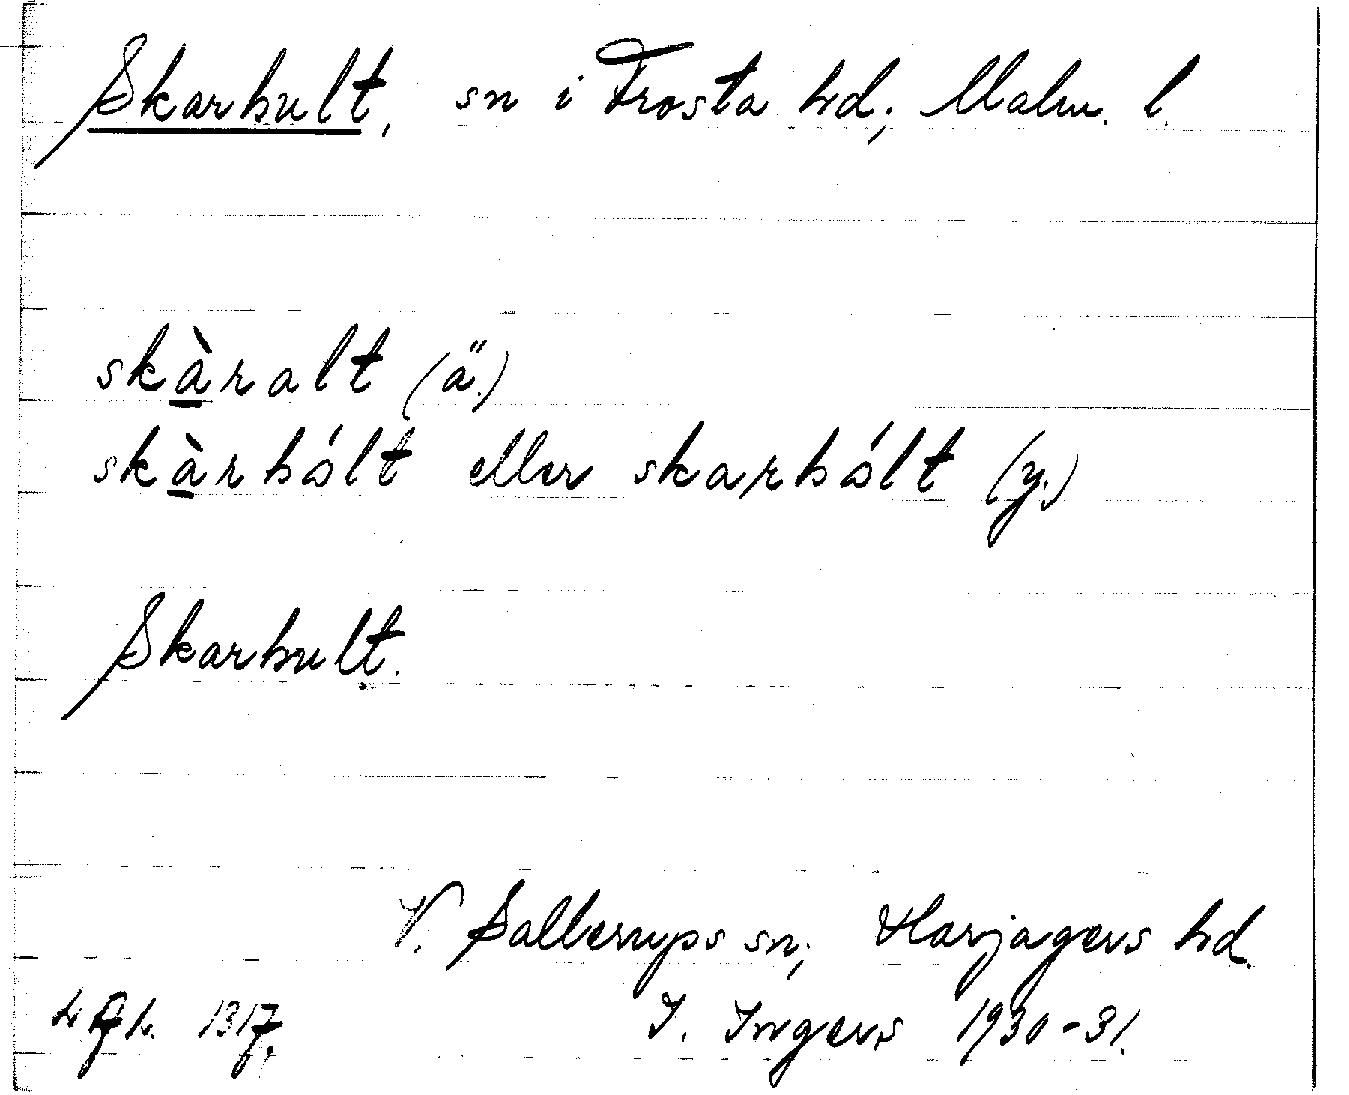 Skarhult, sn i Frosta hd, Malm. l.
skàralt (ä.)
skàrhólt eller skarhólt (y.)
Skarhult.
V. Sallerups sn, Harjagers hd.
I. Ingers 1930-31.